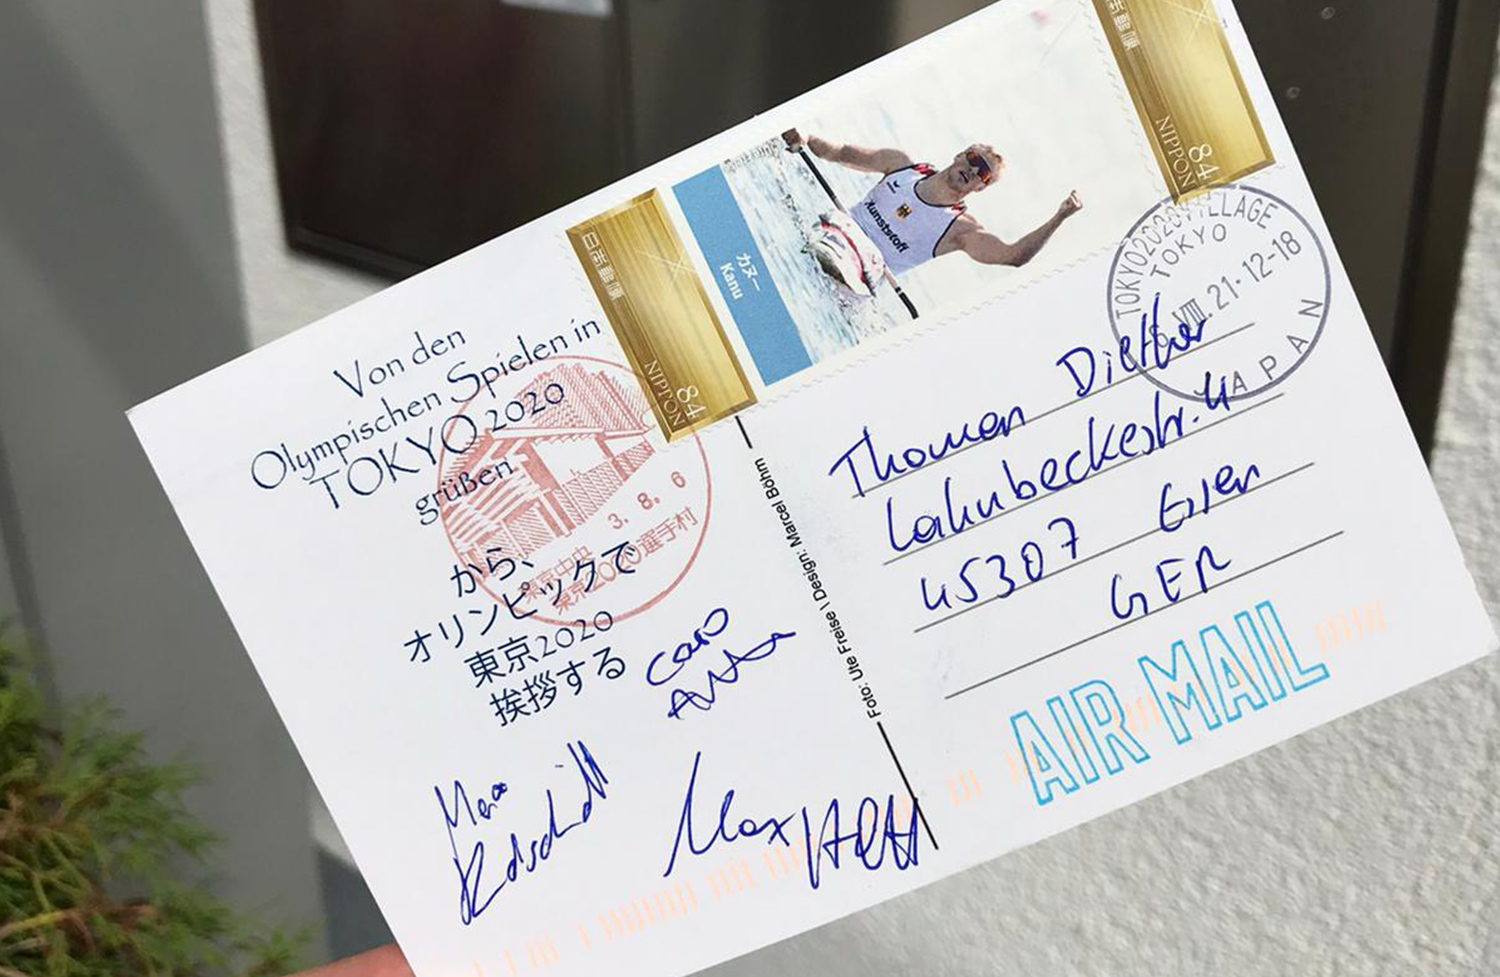 Von den
Olympischen Spielen in
TOKYO 2020
grüßen
から、
オリンピックで
東京2020
挨拶する
3. 8. 6
東京中央
東京2020選手村
日本郵便
NIPPON 84
カヌー
Kanu
Kunststoff
日本郵便
NIPPON 84
TOKYO2020VILLAGE
TOKYO
6.VIII.21.12-18
JAPAN
Foto: Ute Freise \ Design: Marcel Böhm
Thomas Diether
45307 Essen
GER
AIR MAIL
Caro
Max